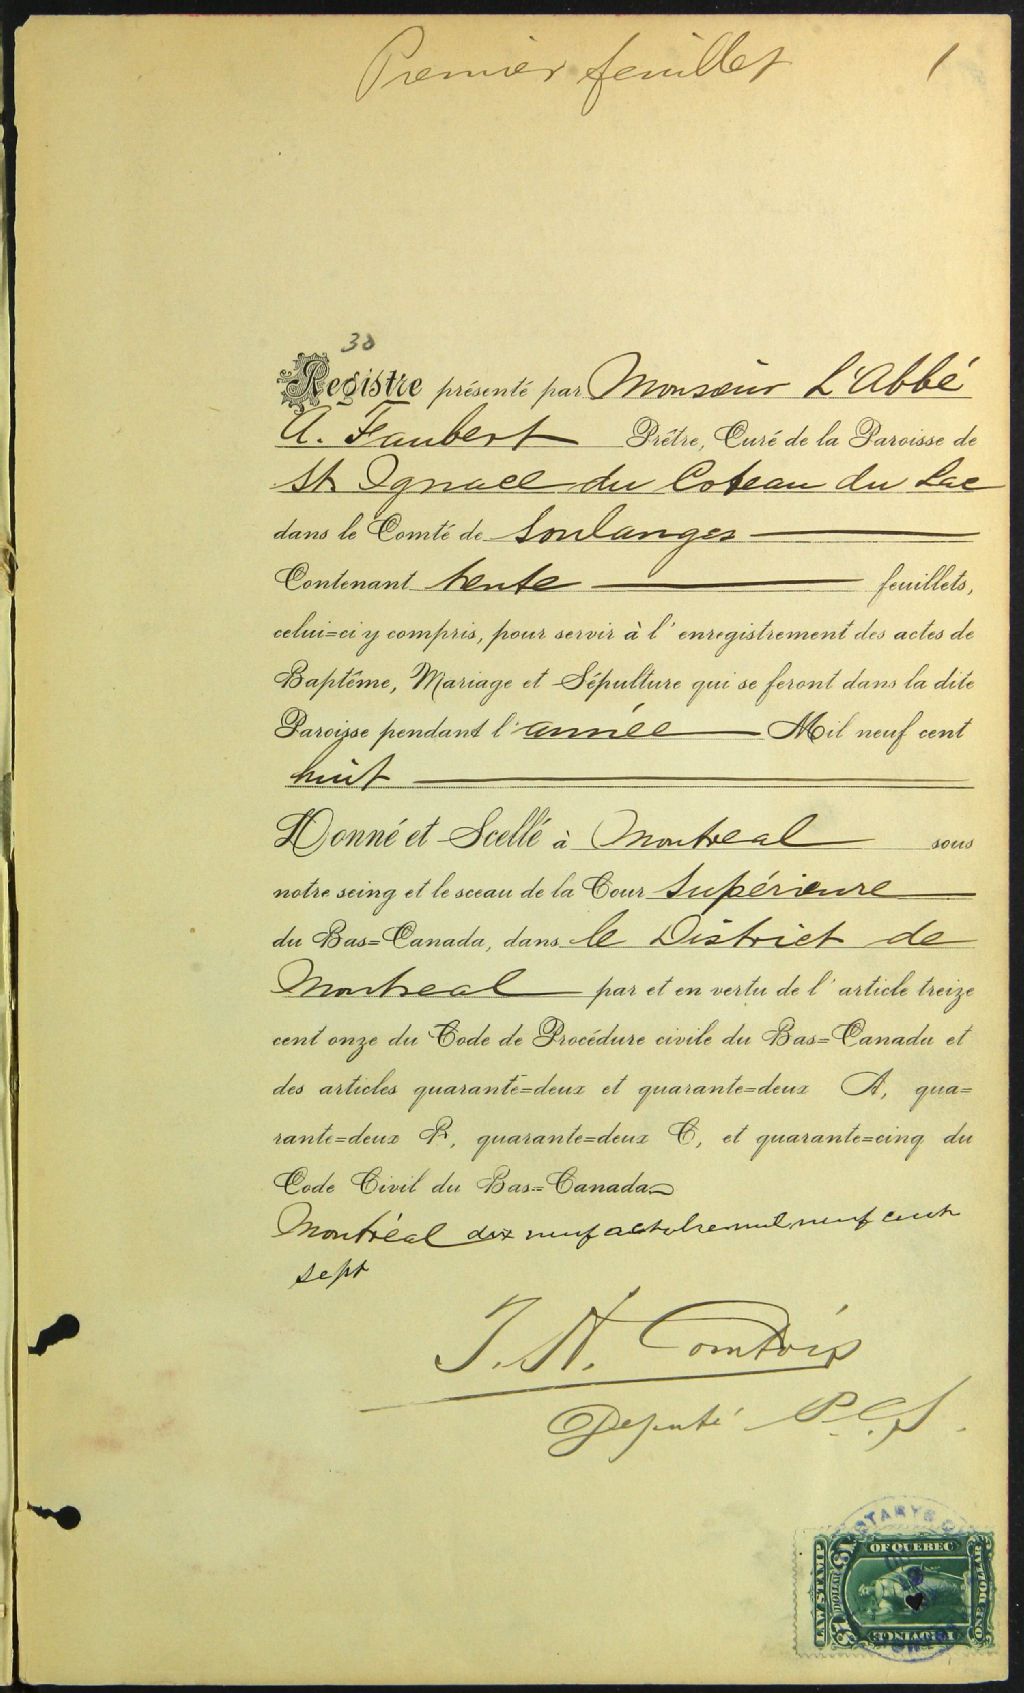 Premier feuillet 1
30
Registre présenté par Monsieur L'Abbé
A. Faubert Prêtre, Curé de la Paroisse de
St Ignace du Coteau du Lac
dans le Comté de Soulanges
Contenant trente feuillets,
celui=ci y compris, pour servir à l'enregistrement des actes de
Baptême, Mariage et Sépulture qui se feront dans la dite
Paroisse pendant l'année Mil neuf cent
huit
Donné et Scellé à Montreal sous
notre seing et le sceau de la Cour Supérieure
du Bas=Canada, dans le District de
Montreal par et en vertu de l'article treize
cent onze du Code de Procédure civile du Bas=Canada et
des articles quarante=deux et quarante=deux A, qua=
rante=deux B, quarante=deux C, et quarante=cinq du
Code Civil du Bas=Canada
Montréal dix neuf octobre mil neuf cent
sept
J. N. Comtois
Deputé P.C.S.
PROVINCE OF QUEBEC
LAW STAMP
ONE DOLLAR
$1 DOLLAR